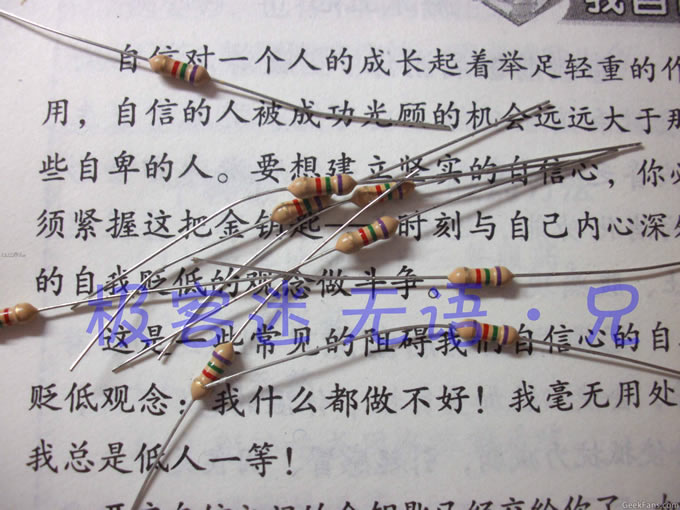 我自
自信对一个人的成长起着举足轻重的作
用，自信的人被成功光顾的机会远远大于那
些自卑的人。要想建立坚实的自信心，你必
须紧握这把金钥匙——时刻与自己内心深处
的自我贬低的观念做斗争。
极客迷 无语·兄
这是一些常见的阻碍我们自信心的自
贬低观念：我什么都做不好！我毫无用处
我总是低人一等！
GeekFans.com